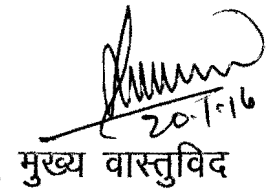 20.1.16
मुख्य वास्तुविद